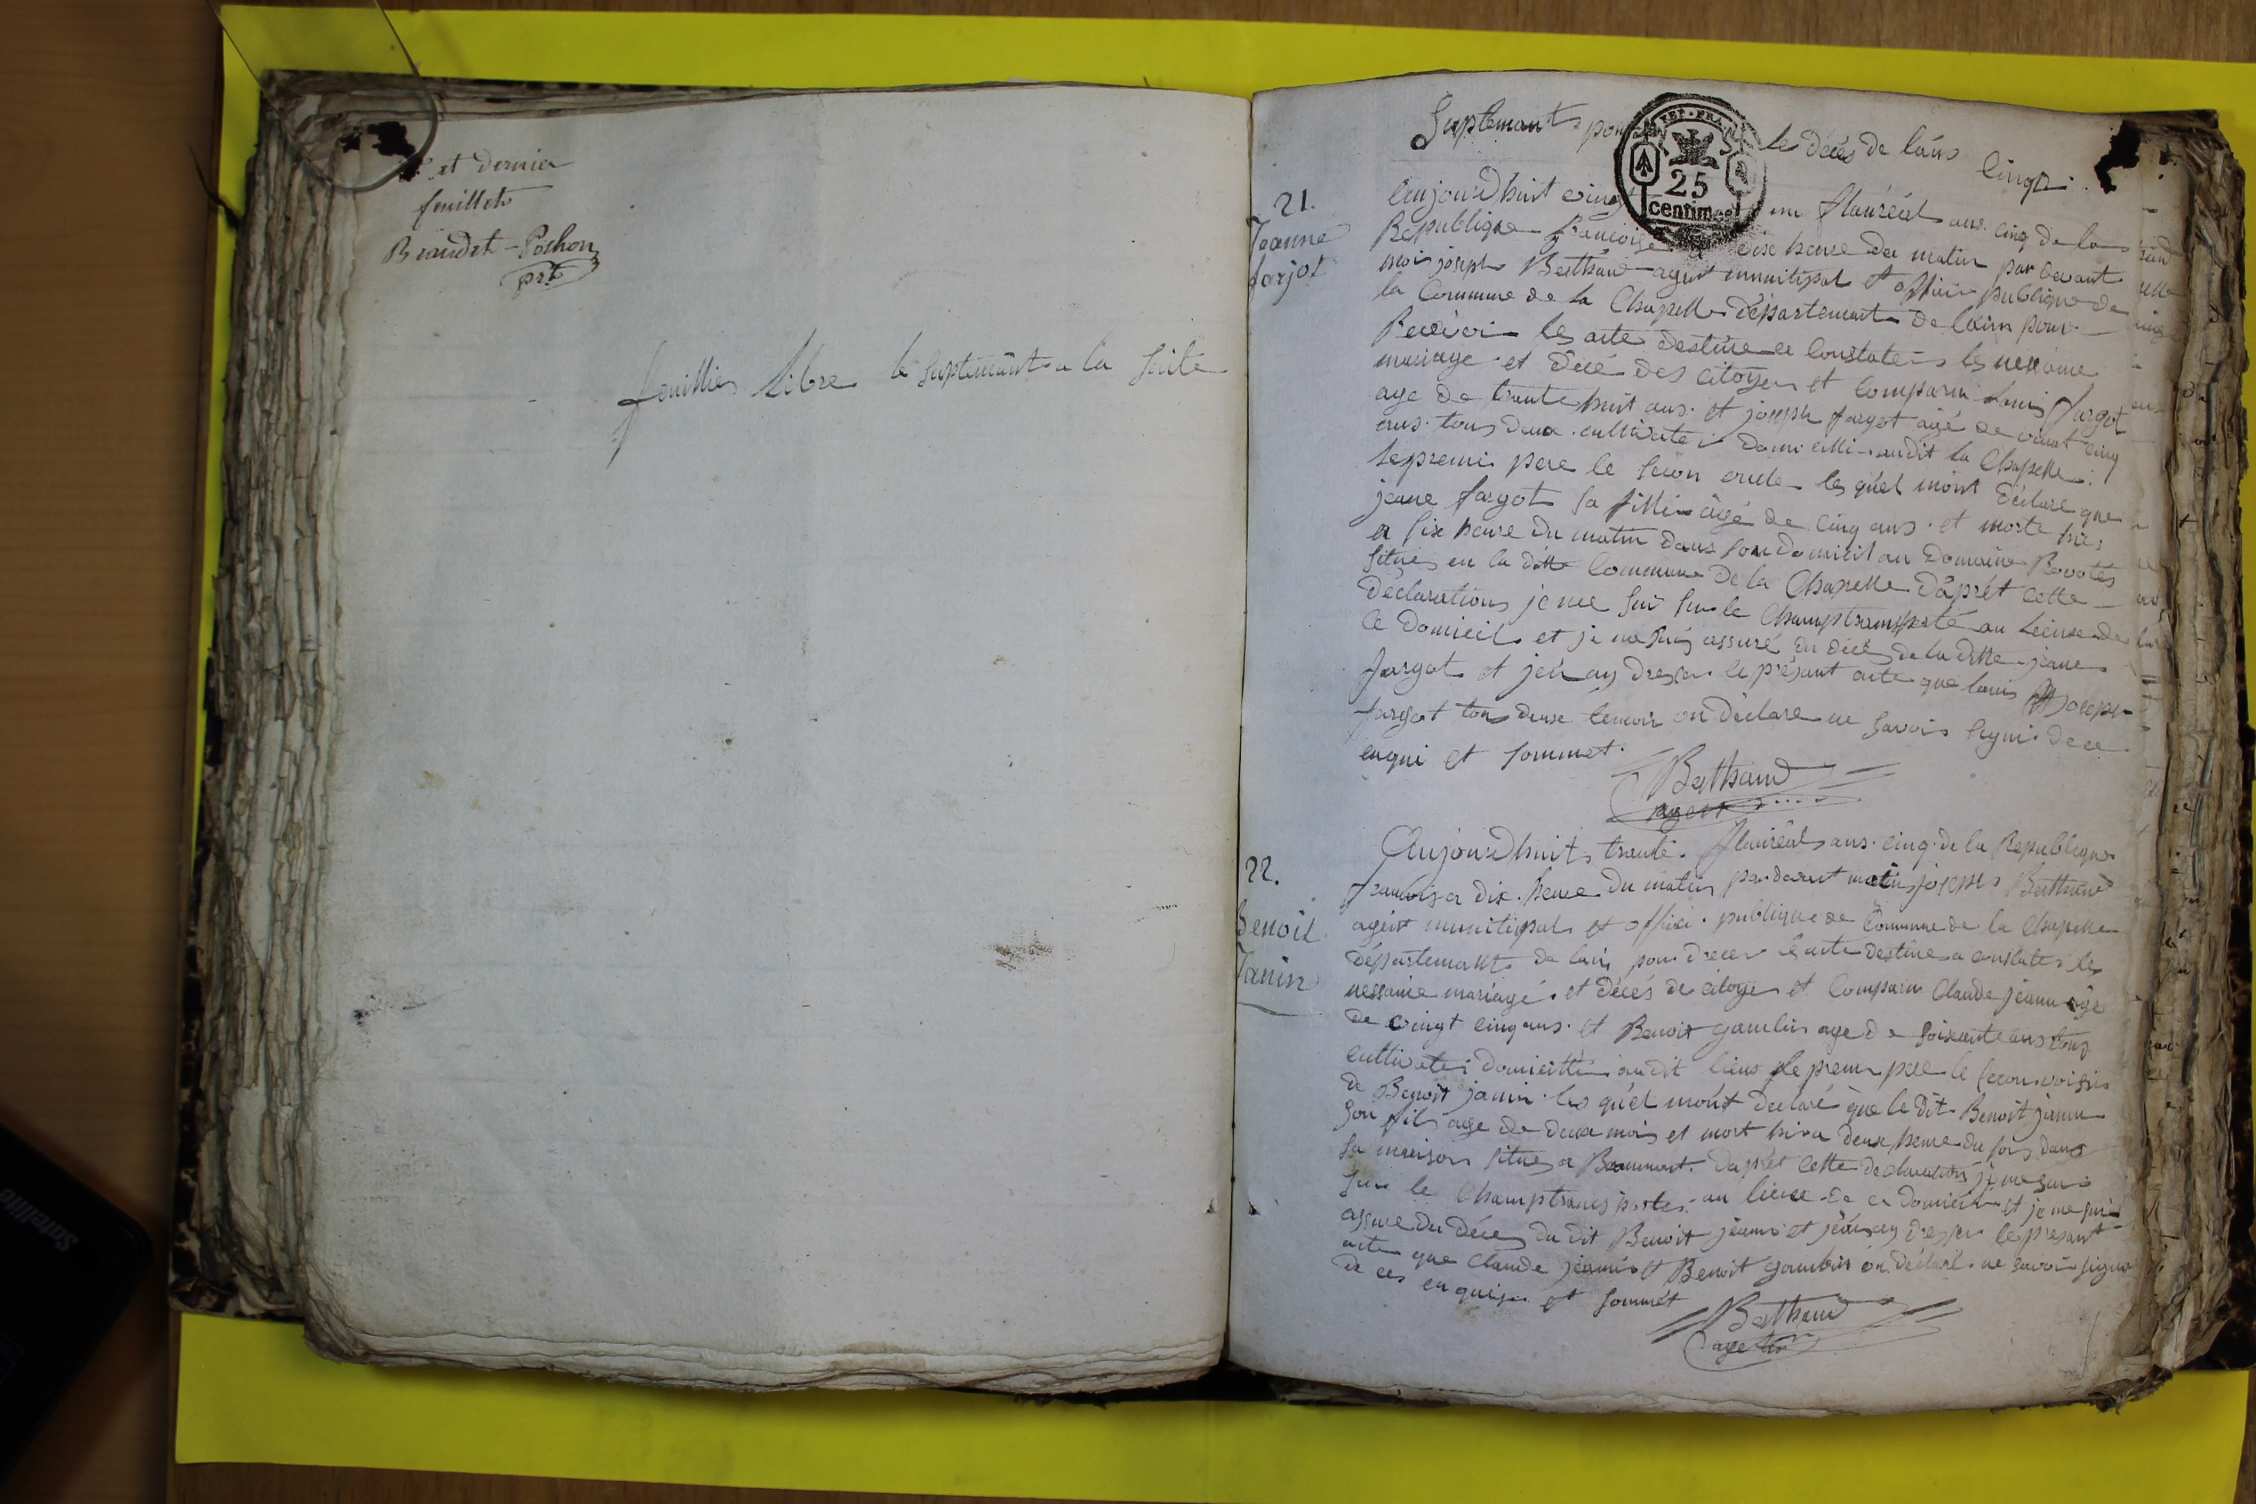 et dernier
feuillet
Beaudet-Pochon
prt
feuillies libre le suptemant a la suite
Suptemant pour les décés de lans
cinq
21.
Jeanne
farjot
REP. FRA
25
centimes
aujourdhuit vingt un flauréal ans cinq de la
Republique francoise a dix heure du matin par devant
moi joseph Berthaud agent municipal et officie publique de
la Commune de la Chapelle département de lain pour
Recevoir les acte destine a constater les nessance
mariage et décé des citoyen et comparu Louis fargot
age de trente huit ans et joseph fargot agé de vint cinq
ans tous deux cultivater domicillie audit la Chapelle
le premie pere le secon oncle les quel mont déclare que
jeane fargot sa fillie âgé de cinq ans et morte hier
a six heure du matin dans son domicil au domaine Rovotes
situés en la ditte Commune de la Chapelle dâprét cette
déclarations je me suis sur le champ transporté au lieux de
ce domicil et je me suis assuré du décés de la ditte jeane
fargot et jen ay dresser le présant acte que louis joseph
fargot tous deux temoin on déclare ne savoir signé de ce
enqui et sommet
Berthaud
agent
22.
Benoit
Janin
Aujourdhuit trente flauréal ans cinq de la Republique
francois a dix heure du matin par devant moi joseph Berthaud
agent municipal et officie publique de Commune de la Chapelle
département de lain pour drecer les acte destine a constater les
nessance mariagé et décés de citoyen et comparu Claude jeanin âgé
de vingt cinq ans et Benoit gambin age de soixante ans tous
cultivater domicillie audit lieux le premie pere le secon voisin
de Benoit janin les quel mont declaré que le dit Benoit janin
son fils age de deux mois et mort hier a deux heure du soir dans
sa maison situes a Beaumont daprét cette déclarations je me suis
sur le champ transportes au lieux de ce domicil et je me suis
assure du décés du dit Benoit jeanin et jen ay dresser le presant
acte que Claude jeanin et Benoit gambin on déclaré ne savoir signé
de ces enquis et sommét
Berthaud
agent